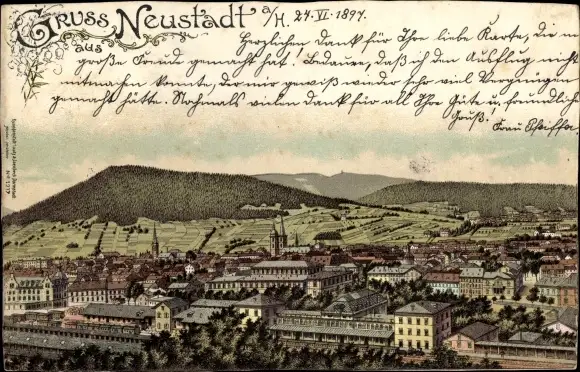 Gruss aus Neustadt a/H. 24. VI. 1897.
Herzlichen Dank für Ihre liebe Karte, die mir
große Freude gemacht hat. Bedaure, daß ich den Ausflug nicht
mitmachen konnte, der mir gewiß wieder sehr viel Vergnügen
gemacht hätte. Nochmals vielen Dank für all Ihre Güte u. freundlich
Gruß.
Frau